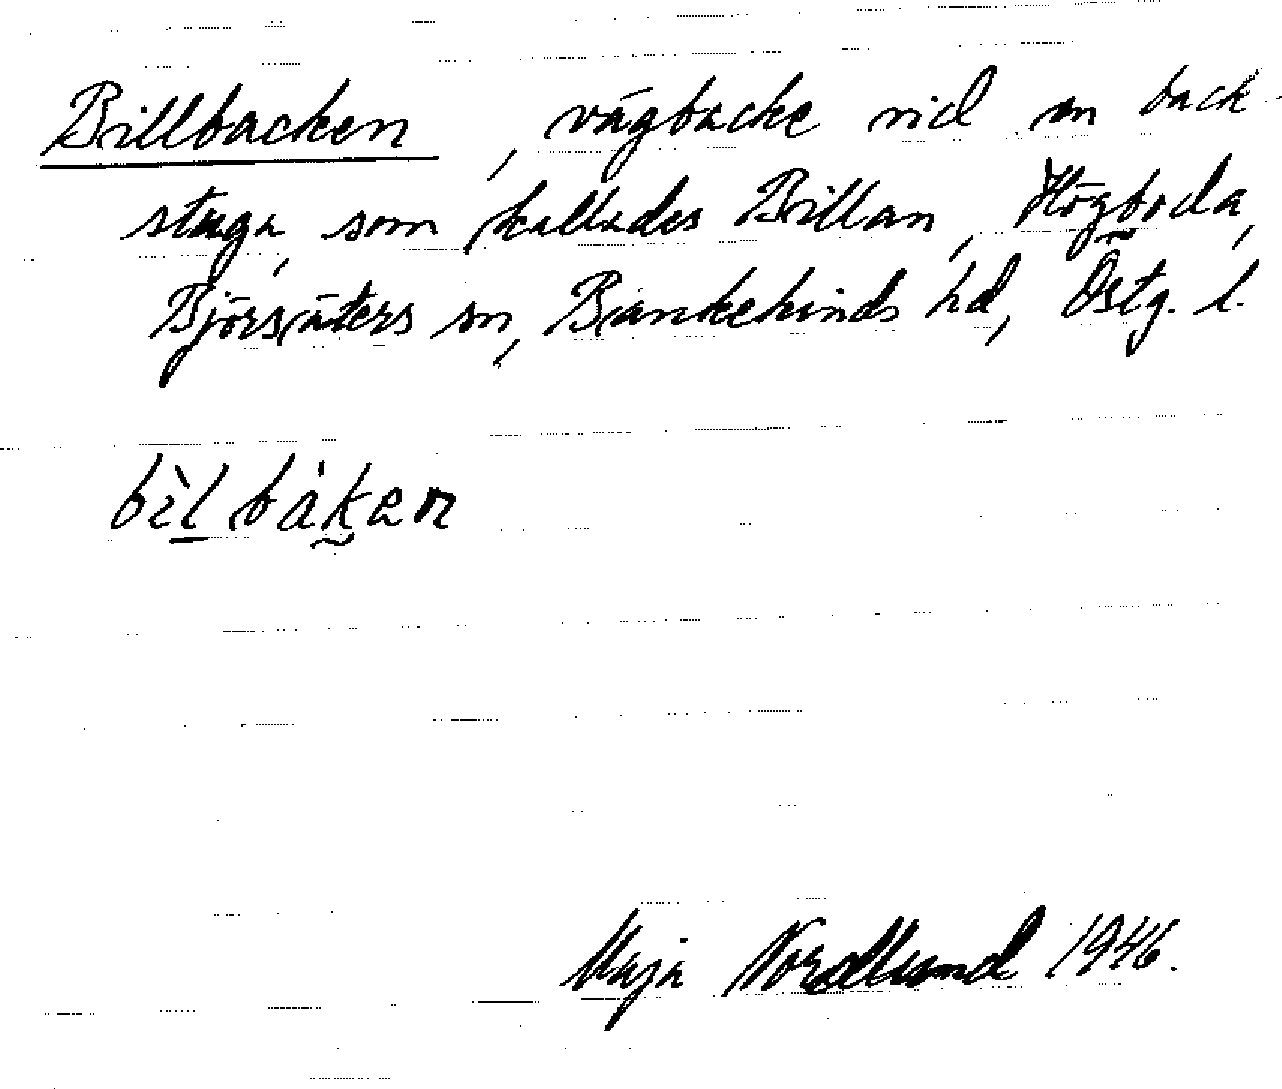 Billbacken, vägbacke vid en back-
stuga, som kallades Billan, Högboda,
Björsäters sn, Bankekinds hd, Östg. l.
bìl bákan
Maja Nordlund 1946.